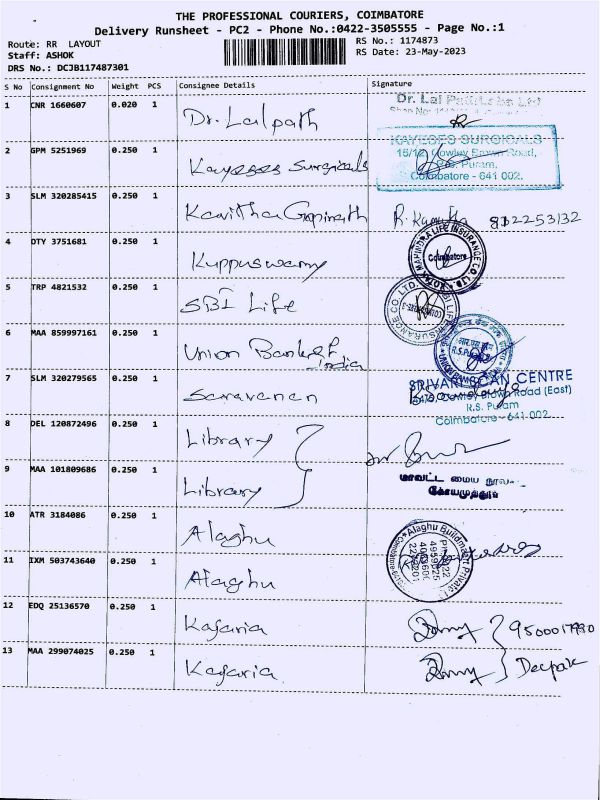 THE PROFESSIONAL COURIERS, COIMBATORE
Delivery Runsheet - PC2 - Phone No.:0422-3505555 - Page No.:1
Route: RR LAYOUT
Staff: ASHOK
DRS No.: DCJB117487301
RS No.: 1174873
RS Date: 23-May-2023
S No Consignment No Weight PCS Consignee Details Signature
1 CNR 1660607 0.020 1 Dr. Lalpath Dr. Lal
2 GPM 5251969 0.250 1 Kayeses Surgicals
KAYEDES SURGICALS
15/12, Cowley Brown Road,
R.S. Puram,
Coimbatore - 641 002.
3 SLM 320285415 0.250 1 Kavitha Gopinath
4 DTY 3751681 0.250 1 Kuppuswamy
Coimbatore
5 TRP 4821532 0.250 1 SBI Life
6 MAA 859997161 0.250 1 Union Bank of India
R.S. Puram
7 SLM 320279565 0.250 1 Saravanan
SRIVARI SCAN CENTRE
Road (East)
R.S. Puram
Coimbatore - 641 002.
8 DEL 120872496 0.250 1 Library
9 MAA 101809686 0.250 1 Library
மாவட்ட மைய நூல
கோயமுத்தூர்
10 ATR 3184086 0.250 1 Alaghu
Alaghu Buildmart Private
11 IXM 503743640 0.250 1 Alaghu
12 EDQ 25136570 0.250 1 Kajaria
13 MAA 299074025 0.250 1 Kajaria Deepak